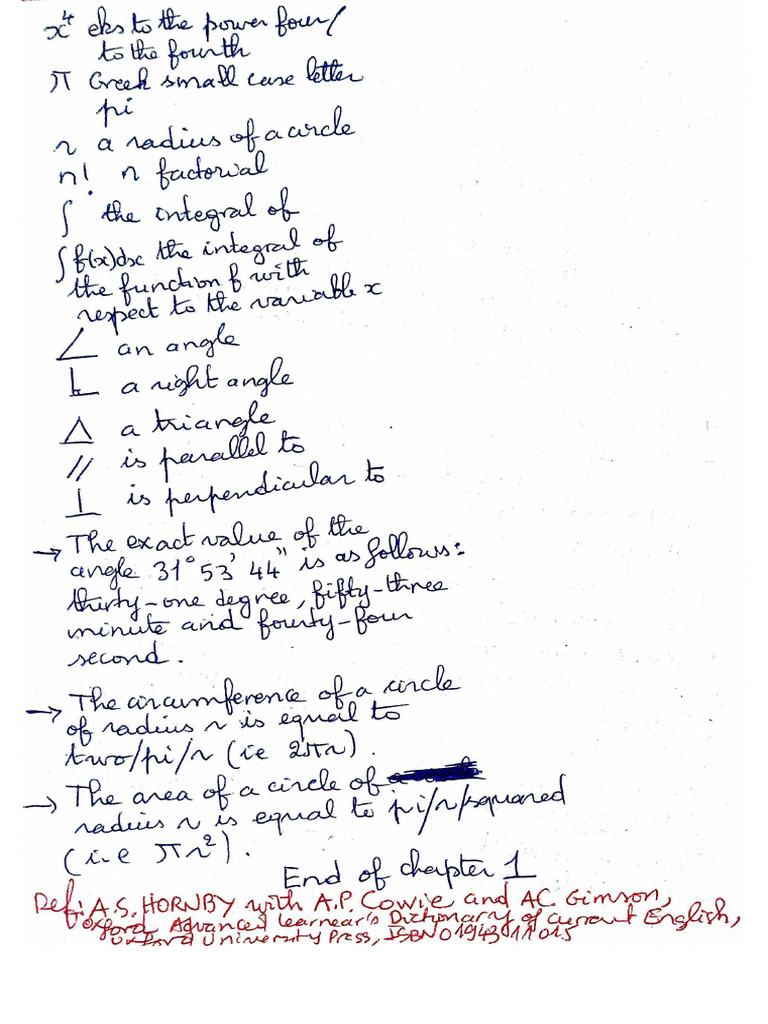 x⁴ eks to the power four/
to the fourth
π Greek small case letter
pi
r a radius of a circle
n! n factorial
∫ the integral of
∫f(x)dx the integral of
the function f with
respect to the variable x
∠ an angle
a right angle
△ a triangle
// is parallel to
⊥ is perpendicular to
→ The exact value of the
angle 31° 53' 44" is as follows:
thirty-one degree, fifty-three
minute and fourty-four
second.
→ The circumference of a circle
of radius r is equal to
two/pi/r (ie 2πr).
→ The area of a circle of
radius r is equal to pi/r/squared
(i.e πr²).
End of chapter 1
Ref: A.S. HORNBY with A.P. Cowie and AC. Gimson,
Oxford Advanced Learnear's Dictionary of current English,
Oxford University Press, ISBN 0194311015